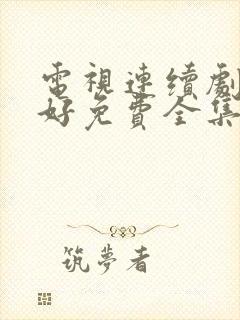 電視連續劇
好免費全集
筑夢者